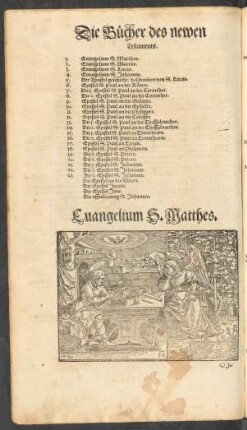 Die Bücher des newen
Testaments.
1. Euangelium S. Matthes.
2. Euangelium S. Marcus.
3. Euangelium S. Lucas.
4. Euangelium S. Johannis.
5. Der Apostel geschichte beschrieben von S. Lucas.
6. Epistel S. Paul an die Römer.
7. Die j. Epistel S. Paul an die Corinther.
8. Die ij. Epistel S. Paul an die Corinther.
9. Epistel S. Paul an die Galater.
10. Epistel S. Paul an die Epheser.
11. Epistel S. Paul an die Philipper.
12. Epistel S. Paul an die Colosser.
13. Die j. Epistel S. Paul an die Thessalonicher.
14. Die ij. Epistel S. Paul an die Thessalonicher.
15. Die j. Epistel S. Paul an Timotheum.
16. Die ij. Epistel S. Paul an Timotheum.
17. Epistel S. Paul an Titum.
18. Epistel S. Paul an Philemon.
19. Die j. Epistel S. Peters.
20. Die ij. Epistel S. Peters.
21. Die j. Epistel S. Johannis.
22. Die ij. Epistel S. Johannis.
23. Die iij. Epistel S. Johannis.
Die Epistel an die Ebreer.
Die Epistel Jacobi.
Die Epistel Jude.
Die offenbarung S. Johannis.
Euangelium S. Matthes.